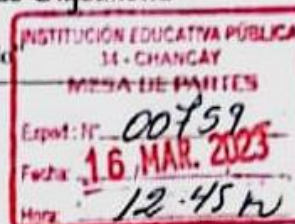 INSTITUCIÓN EDUCATIVA PÚBLICA
14 - CHANCAY
MESA DE PARTES
Exped: N° 00759
Fecha: 16 MAR. 2023
Hora: 12.45